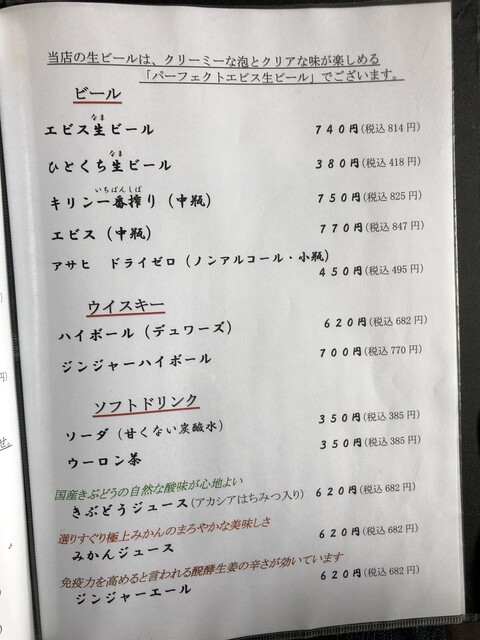 当店の生ビールは、クリーミーな泡とクリアな味が楽しめる
「パーフェクトエビス生ビール」でございます。
ビール
なま
エビス生ビール 740円(税込814円)
なま
ひとくち生ビール 380円(税込418円)
いちばんしぼ
キリン一番搾り(中瓶) 750円(税込825円)
エビス(中瓶) 770円(税込847円)
アサヒ ドライゼロ(ノンアルコール・小瓶)
450円(税込495円)
ウイスキー
ハイボール(デュワーズ) 620円(税込682円)
ジンジャーハイボール 700円(税込770円)
ソフトドリンク
ソーダ(甘くない炭酸水) 350円(税込385円)
ウーロン茶 350円(税込385円)
国産きぶどうの自然な酸味が心地よい
きぶどうジュース(アカシアはちみつ入り) 620円(税込682円)
選りすぐり極上みかんのまろやかな美味しさ
みかんジュース 620円(税込682円)
免疫力を高めると言われる醗酵生姜の辛さが効いています
ジンジャーエール 620円(税込682円)
円)
せ。